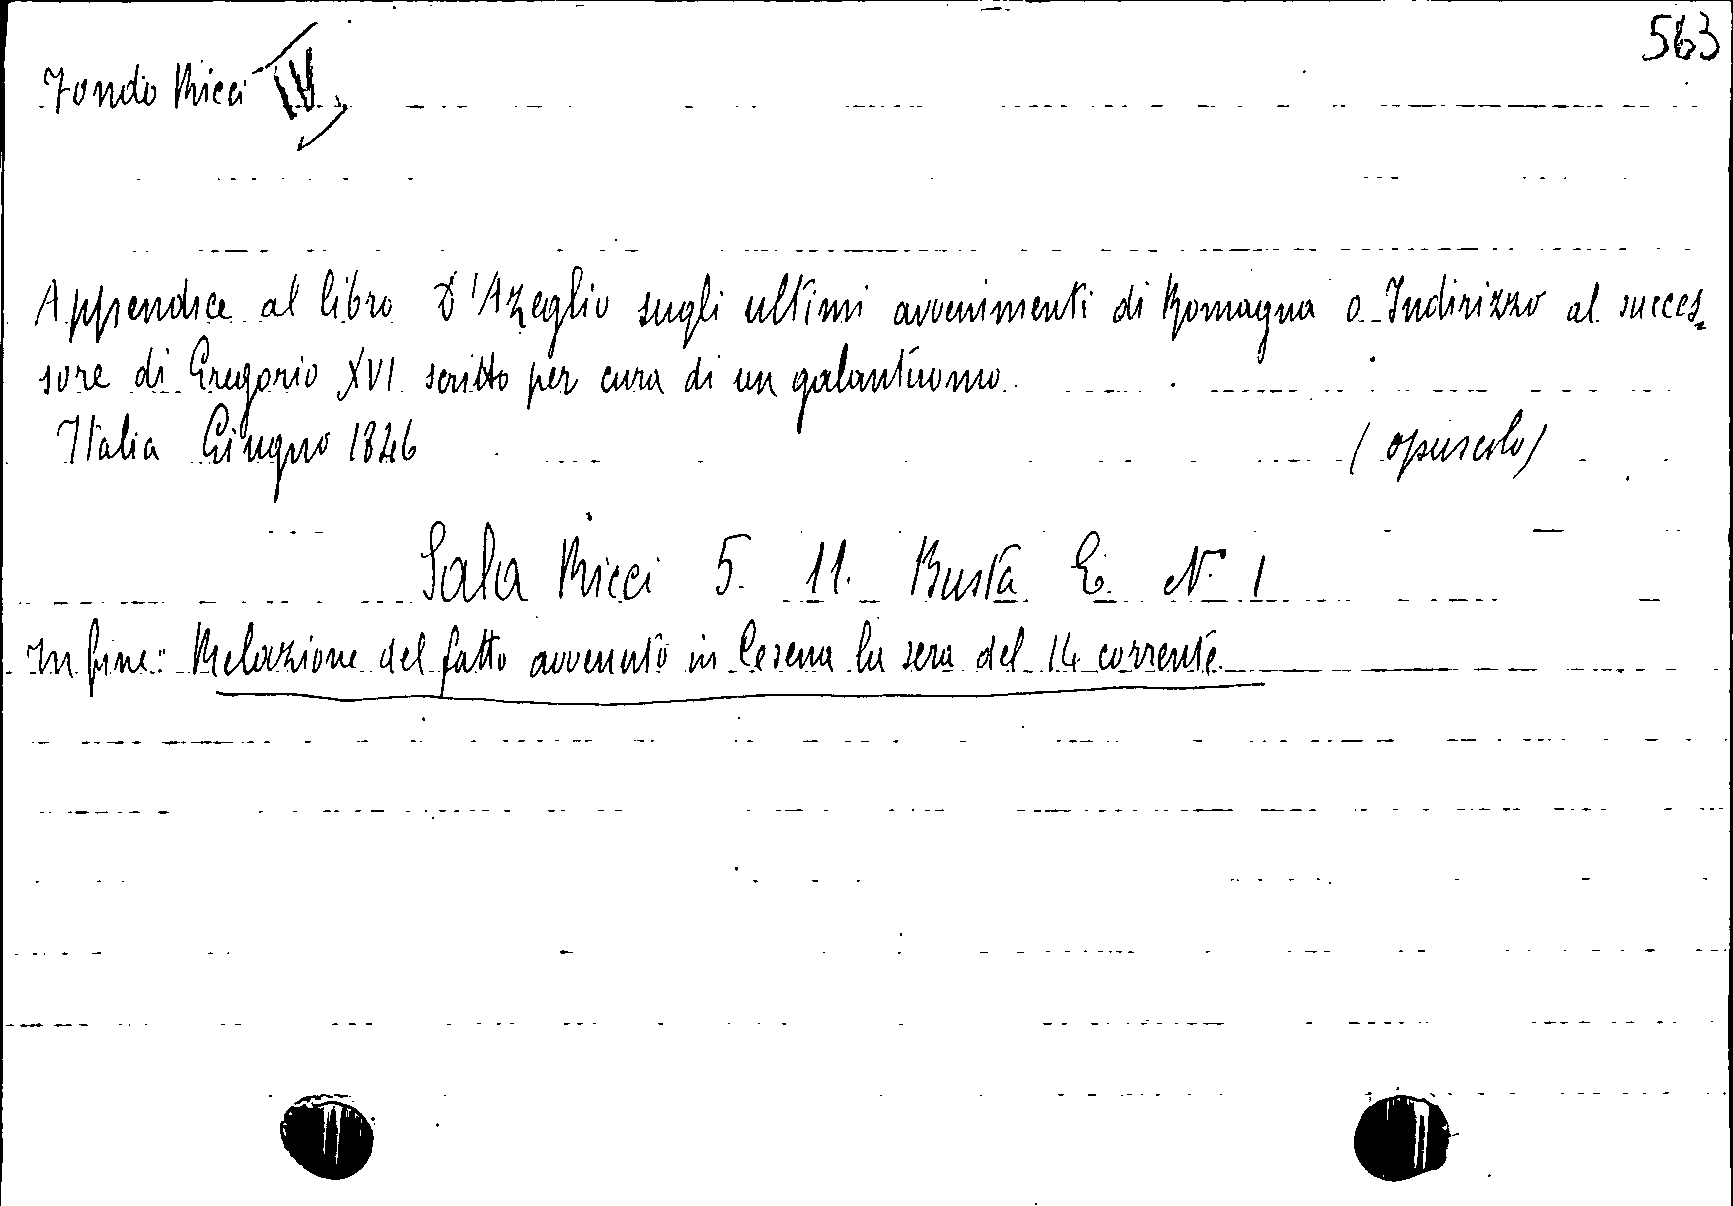 563
Fondo Ricci IV
Appendice al libro D'Azeglio sugli ultimi avvenimenti di Romagna o Indirizzo al succes-
sore di Gregorio XVI scritto per cura di un galantuomo
Italia Giugno 1846 (opuscolo)
Sala Ricci 5. 11. Busta E. N. 1
In fine: Relazione del fatto avvenuto in Cesena la sera del 14 corrente